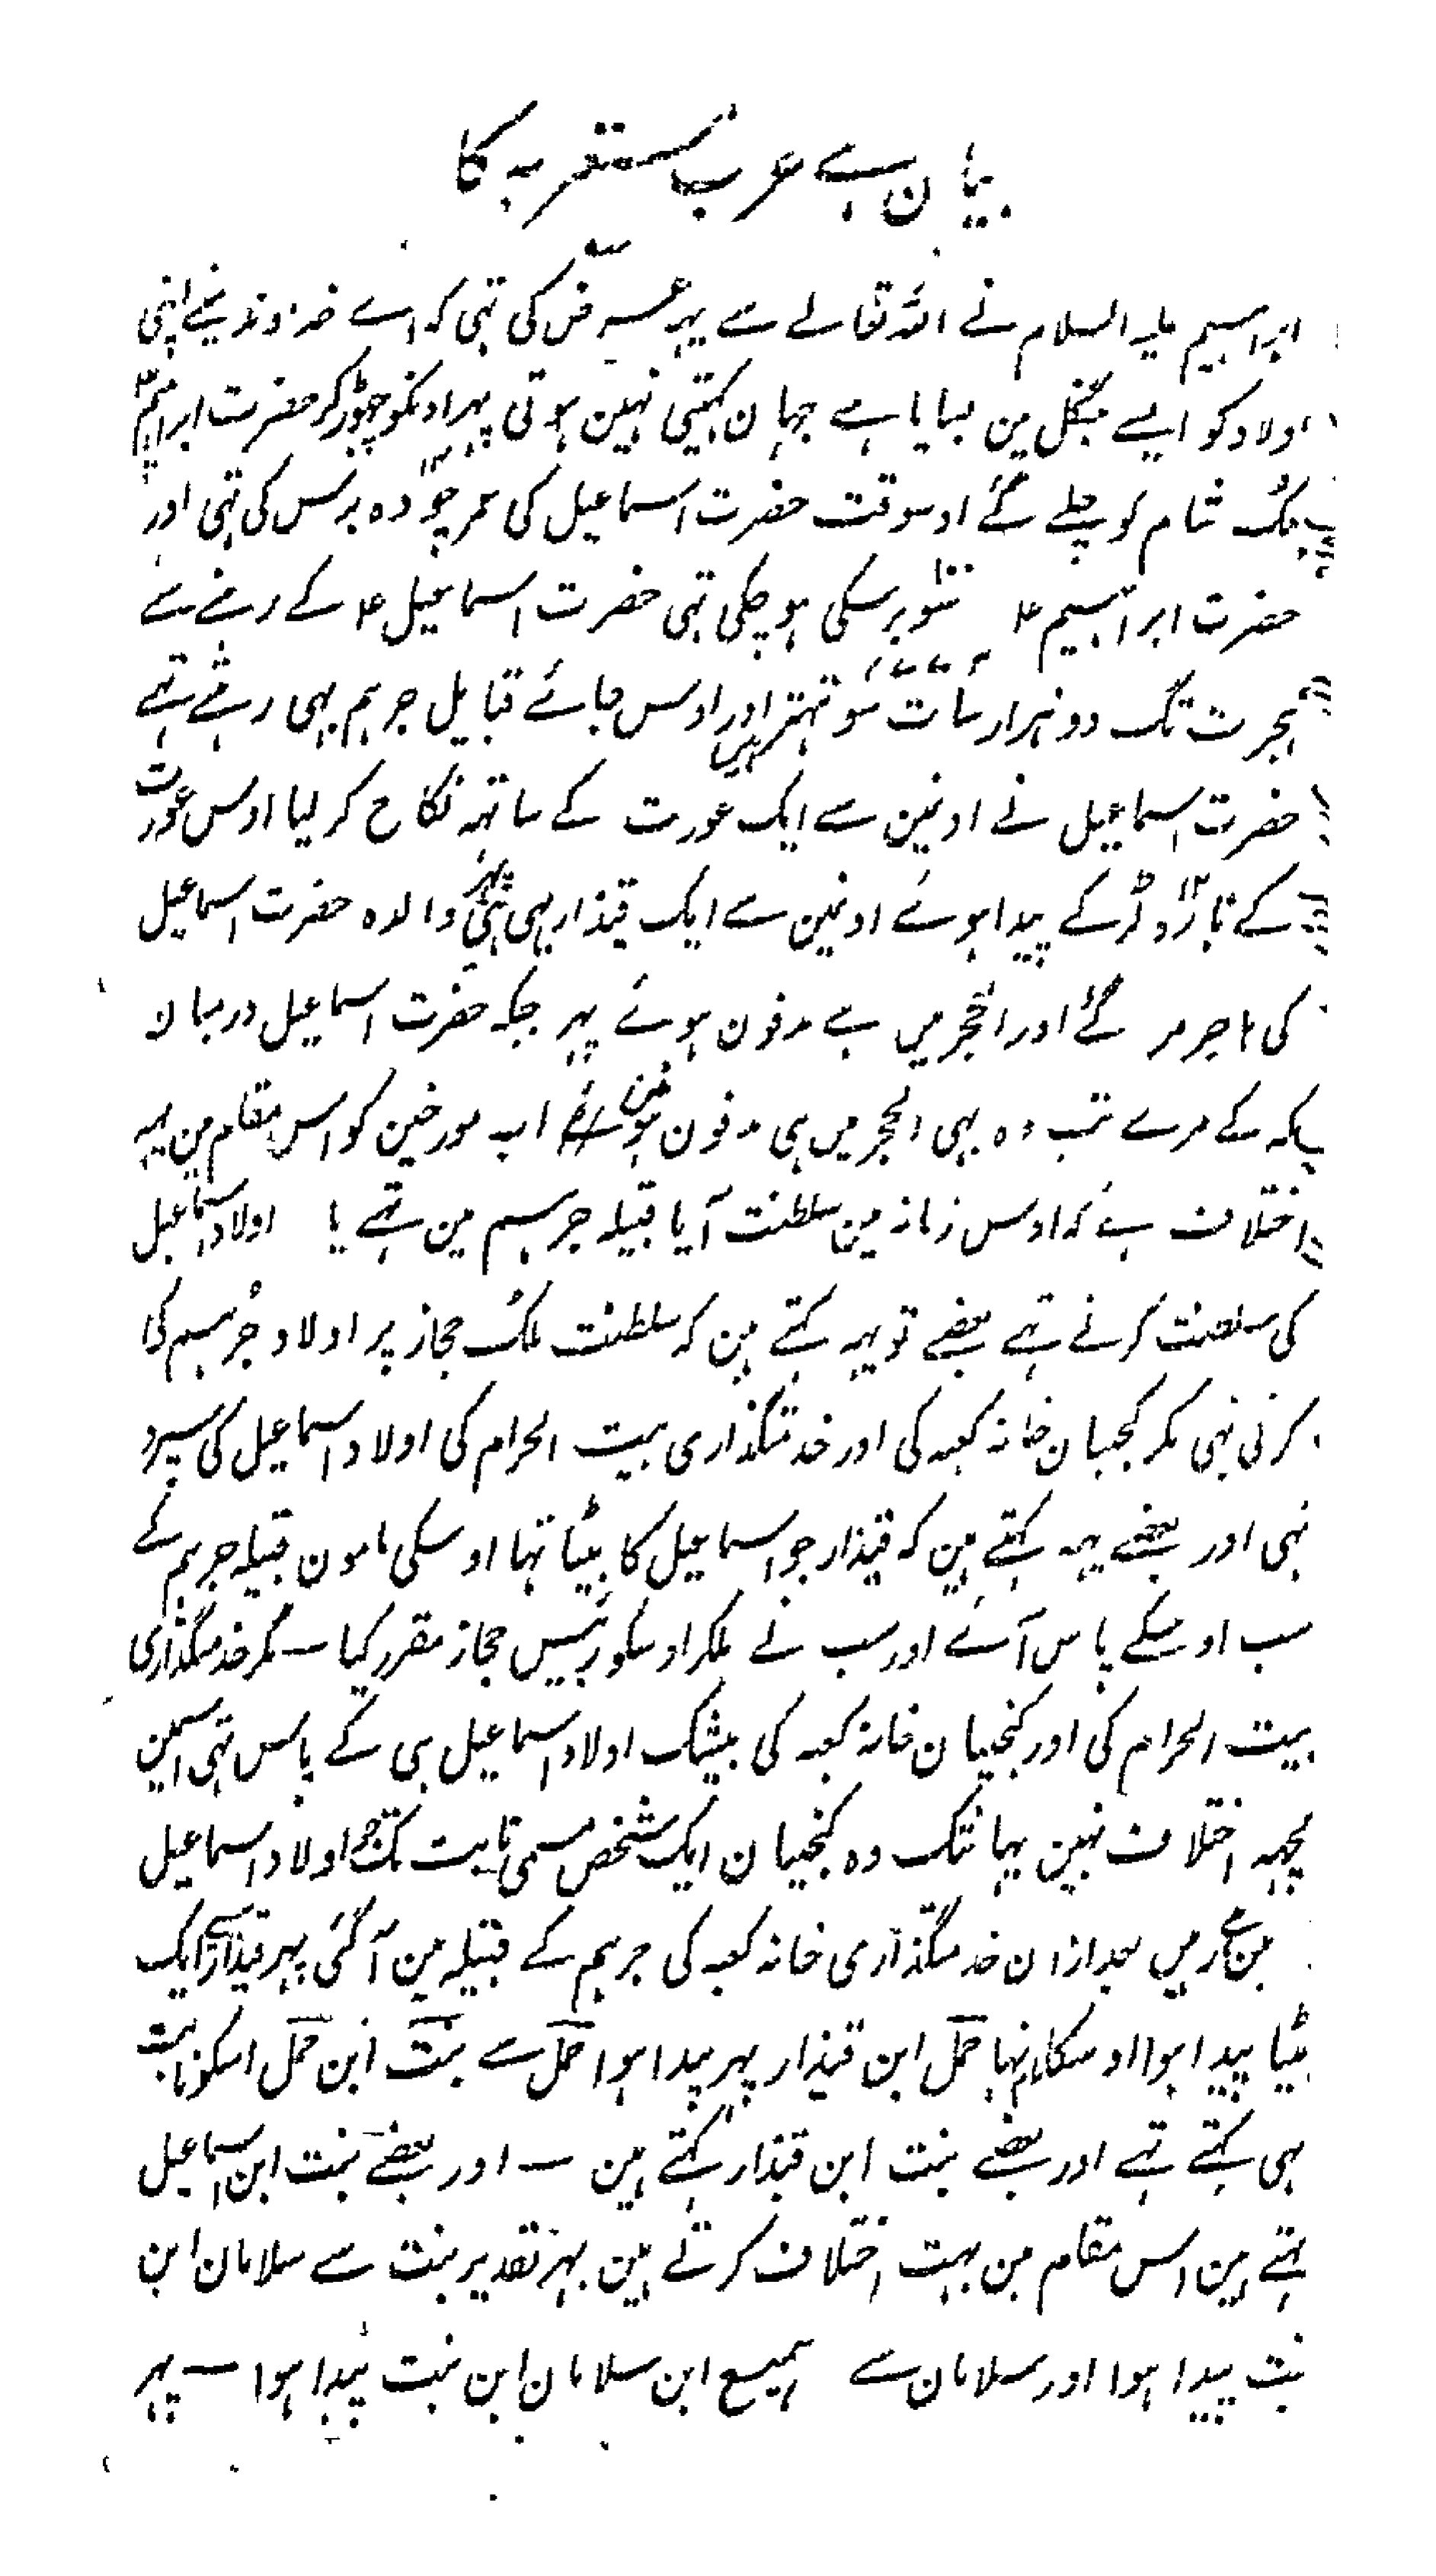 بیان ہے عرب مستعربہ کا
ابراہیم علیہ السلام نے اللہ تعالے سے یہہ عرض کی تہی کہ اے خداوند مینے اپنی
اولاد کو ایسے جنگل مین بسایا ہے جہان کہیتی نہین ہوتی پہر اونکو چہوڑ کر حضرت ابراہیم ؑ
ملک شام کو چلے گئے اوسوقت حضرت اسماعیل کی عمر چودہ برس کی تہی اور
حضرت ابراہیم ؑ سو برسکی ہو چکی تہی حضرت اسماعیل ؑ کے رہنے سے
ہجرت تک دو ہزار سات سو تہتر اور اوس جائے قبایل جرہم بہی رہتے تہے
حضرت اسماعیل نے اونہین سے ایک عورت کے ساتہہ نکاح کر لیا اوس عورت
کے بارہ لڑکے پیدا ہوئے اونہین سے ایک قیذار بہی تہی پہر والدہ حضرت اسماعیل
کی ہاجر مر گئے اور الحجر میں ہے مدفون ہوئے پہر جبکہ حضرت اسماعیل درمیان
مکہ کے مرے تب وہ بہی الحجر میں ہی مدفون ہوئے اب مورخین کو اس مقام مین یہہ
اختلاف ہے کہ اوس زمانہ مین سلطنت آیا قبیلہ جرہم مین تہے یا اولاد اسماعیل
کی سلطنت کرتے تہے بعضے تو یہہ کہتے ہین کہ سلطنت ملک حجاز پر اولاد جُرہم کی
کرتی تہی مگر کنجیان خانہ کعبہ کی اور خدمتگذاری بیت الحرام کی اولاد اسماعیل کی سپرد
تہی اور بعضے یہہ کہتے ہین کہ قیذار جو اسماعیل کا بیٹا تہا اوسکی مامون قبیلہ جرہم کے
سب اوسکے پاس آئے اور سب نے ملکر اوسکو رئیس حجاز مقرر کیا — مگر خدمتگذاری
بیت الحرام کی اور کنجیان خانہ کعبہ کی بیشک اولاد اسماعیل ہی کے پاس تہی اسمین
کچہہ اختلاف نہین یہانتک وہ کنجیان ایک شخص مسمی ثابت تک جو اولاد اسماعیل
مین سے رہیں بعد ازان خدمتگذاری خانہ کعبہ کی جرہم کے قبیلہ مین آ گئی پہر قیذار سے ایک
بیٹا پیدا ہوا اوسکا نام تہا حمل ابن قیذار پہر پیدا ہوا حمل سے نبت ابن حمل اسکو نابت
بہی کہتے تہے اور بعضے نبت ابن قیذار کہتے ہین — اور بعضے نبت ابن اسماعیل
کہتے ہین اس مقام مین بہت اختلاف کرتے ہین بہر تقدیر نبت سے سلامان ابن
نبت پیدا ہوا اور سلامان سے ہمیسع ابن سلامان ابن نبت پیدا ہوا — پہر